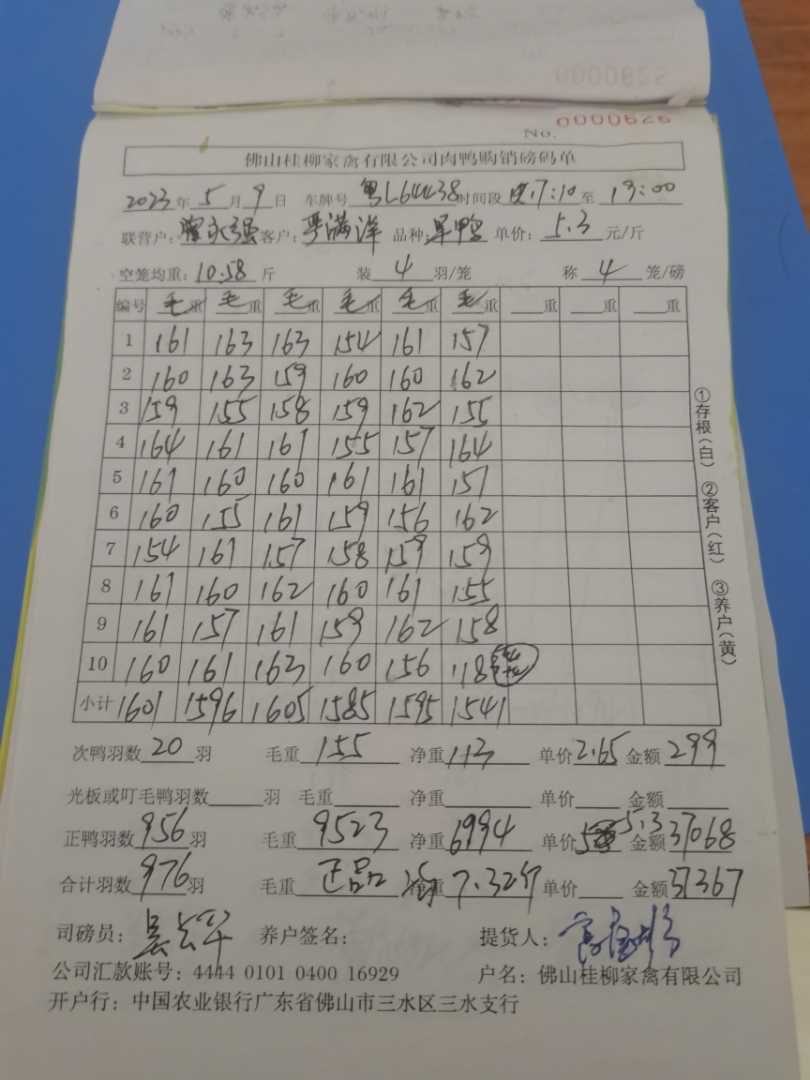 No. 0000626
佛山桂柳家禽有限公司肉鸭购销磅码单
2023年5月9日 车牌号 粤L64438 时间段 7:10至19:00
联营户: 永强 客户: 严满洋 品种: 旱鸭 单价: 5.3元/斤
空笼均重: 10.58斤 装4羽/笼 称4笼/磅
编号 毛重 毛重 毛重 毛重 毛重 毛重 重 重 重
1 161 163 163 154 161 157
2 160 163 159 160 160 162
3 159 155 158 159 162 155
4 164 161 161 155 157 164
5 161 160 160 161 161 151
6 160 155 161 159 156 162
7 154 161 157 158 159 159
8 161 160 162 160 161 155
9 161 157 161 159 162 158
10 160 161 163 160 156 118
小计 1601 1596 1605 1585 1595 1541
①存根(白) ②客户(红) ③养户(黄)
次鸭羽数20羽 毛重155 净重113 单价2.65 金额299
光板或叮毛鸭羽数 羽 毛重 净重 单价 金额
正鸭羽数956羽 毛重9523 净重6994 单价5.3 金额37068
合计羽数976羽 毛重 正品口 净重7.32斤 单价 金额37367
司磅员: 养户签名: 提货人:
公司汇款账号: 4444 0101 0400 16929 户名: 佛山桂柳家禽有限公司
开户行: 中国农业银行广东省佛山市三水区三水支行